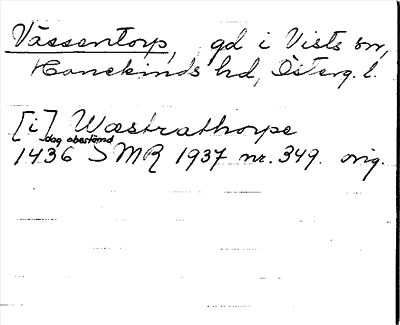 Vässentorp, gd i Vists sn,
Hanekinds hd, Österg. l.
[i] Wæstrathorpe
dag obestämd
1436 SMR 1937 nr. 349. orig.